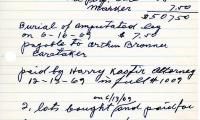 marker 7.50
$507.50
Burial of amputated leg
on 6-16-69 $7.50
payable to Arthur Bronner
Caretaker
paid by Harry Kaefer Attorney
12-19-69 in full #1009
on 6/19/69
2, lots bought and paid for